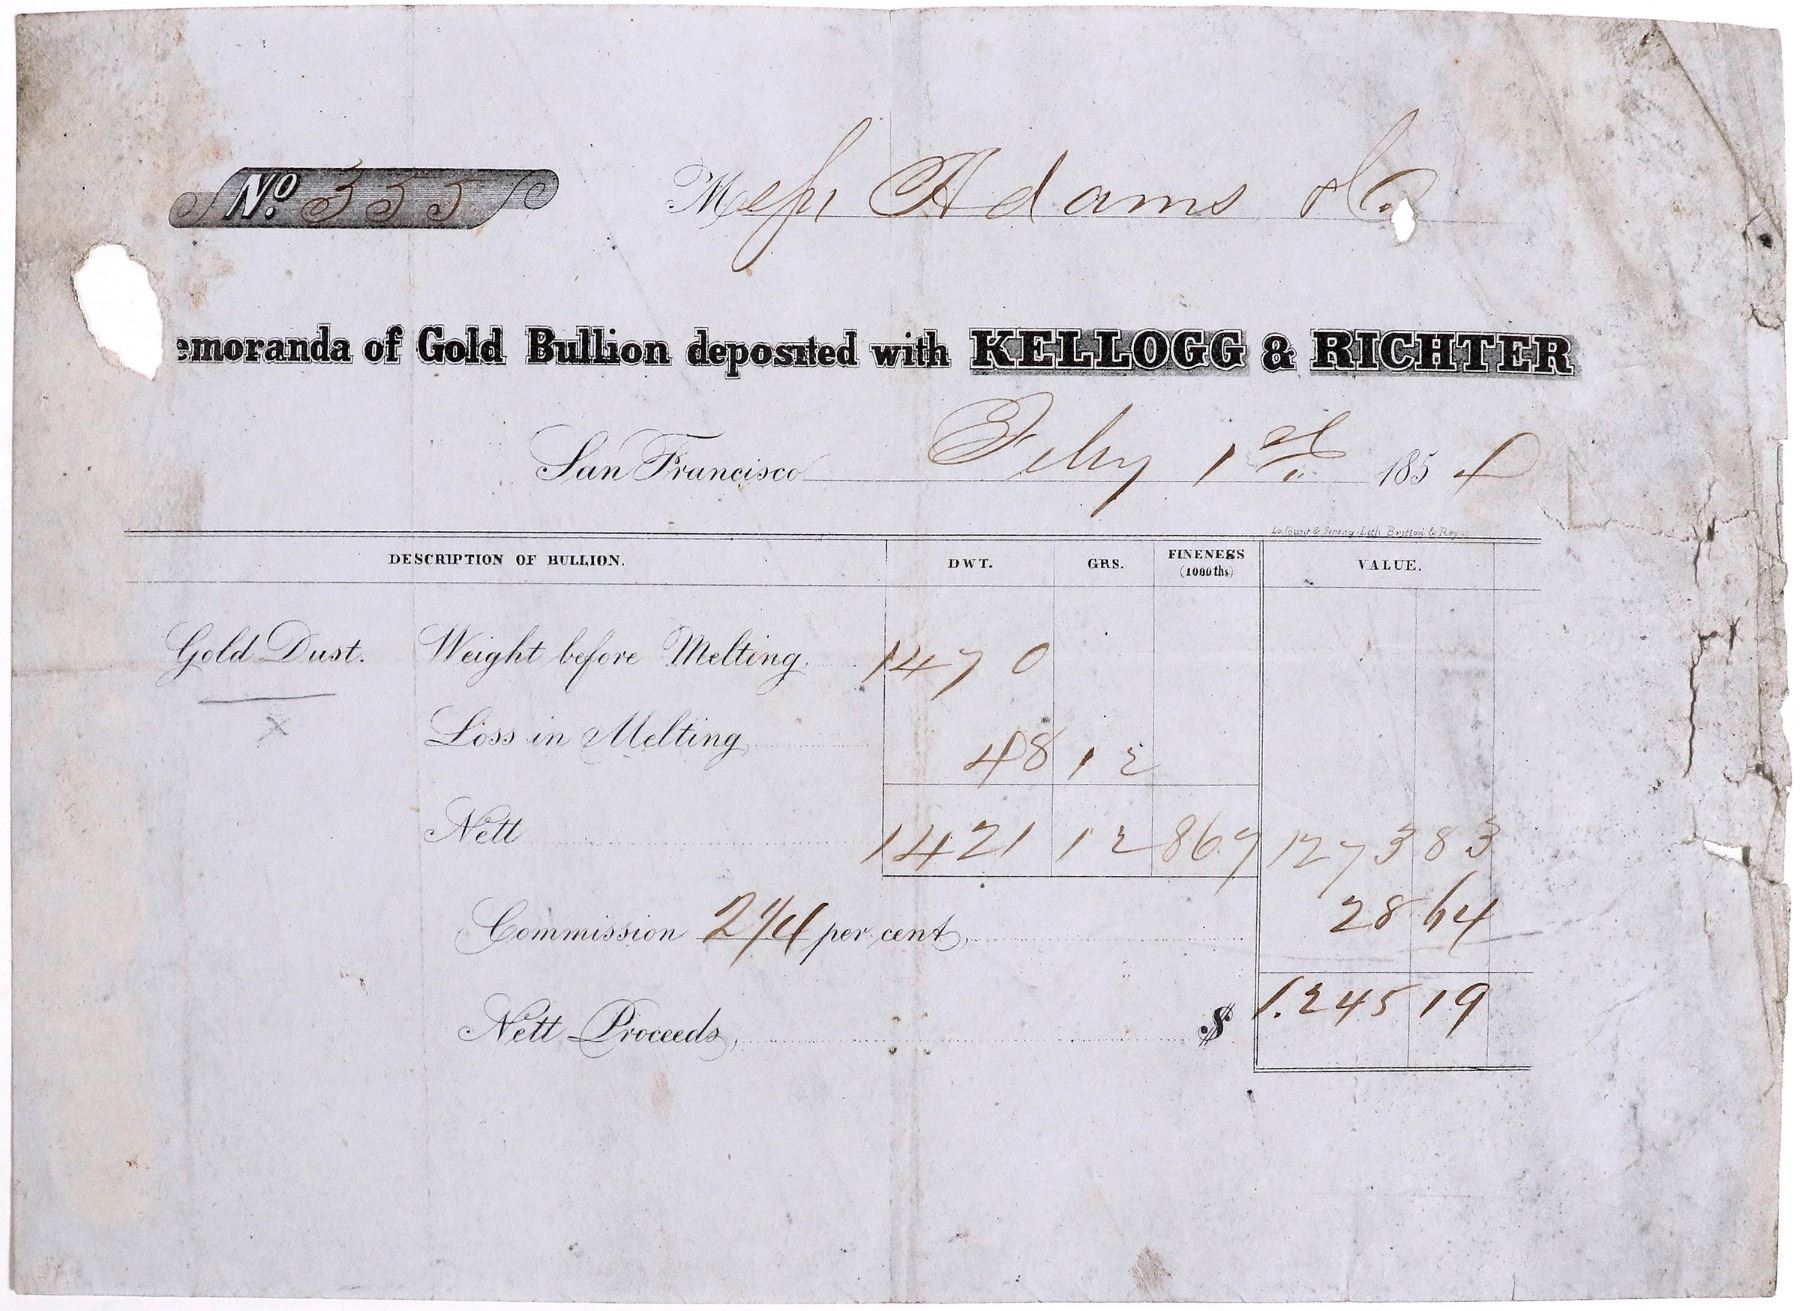 No. 355 Messrs Adams & Co.
emoranda of Gold Bullion deposited with KELLOGG & RICHTER
San Francisco Feby 1st 1854
Lith. Britton & Rey.
DESCRIPTION OF BULLION. DWT. GRS. FINENESS (1000ths) VALUE.
Gold Dust. Weight before Melting 1470
x
Loss in Melting 48 12
Nett 1421 12 867 1273 83
Commission 2 1/4 per cent, 28 64
Nett Proceeds, $ 1.245 19